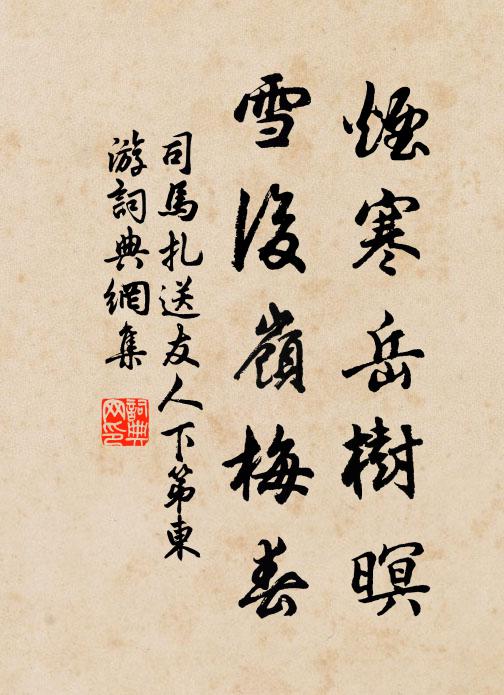 煙寒岳樹暝
雪後嶺梅春
司馬扎送友人下第東
游詞典網集
詞典网印